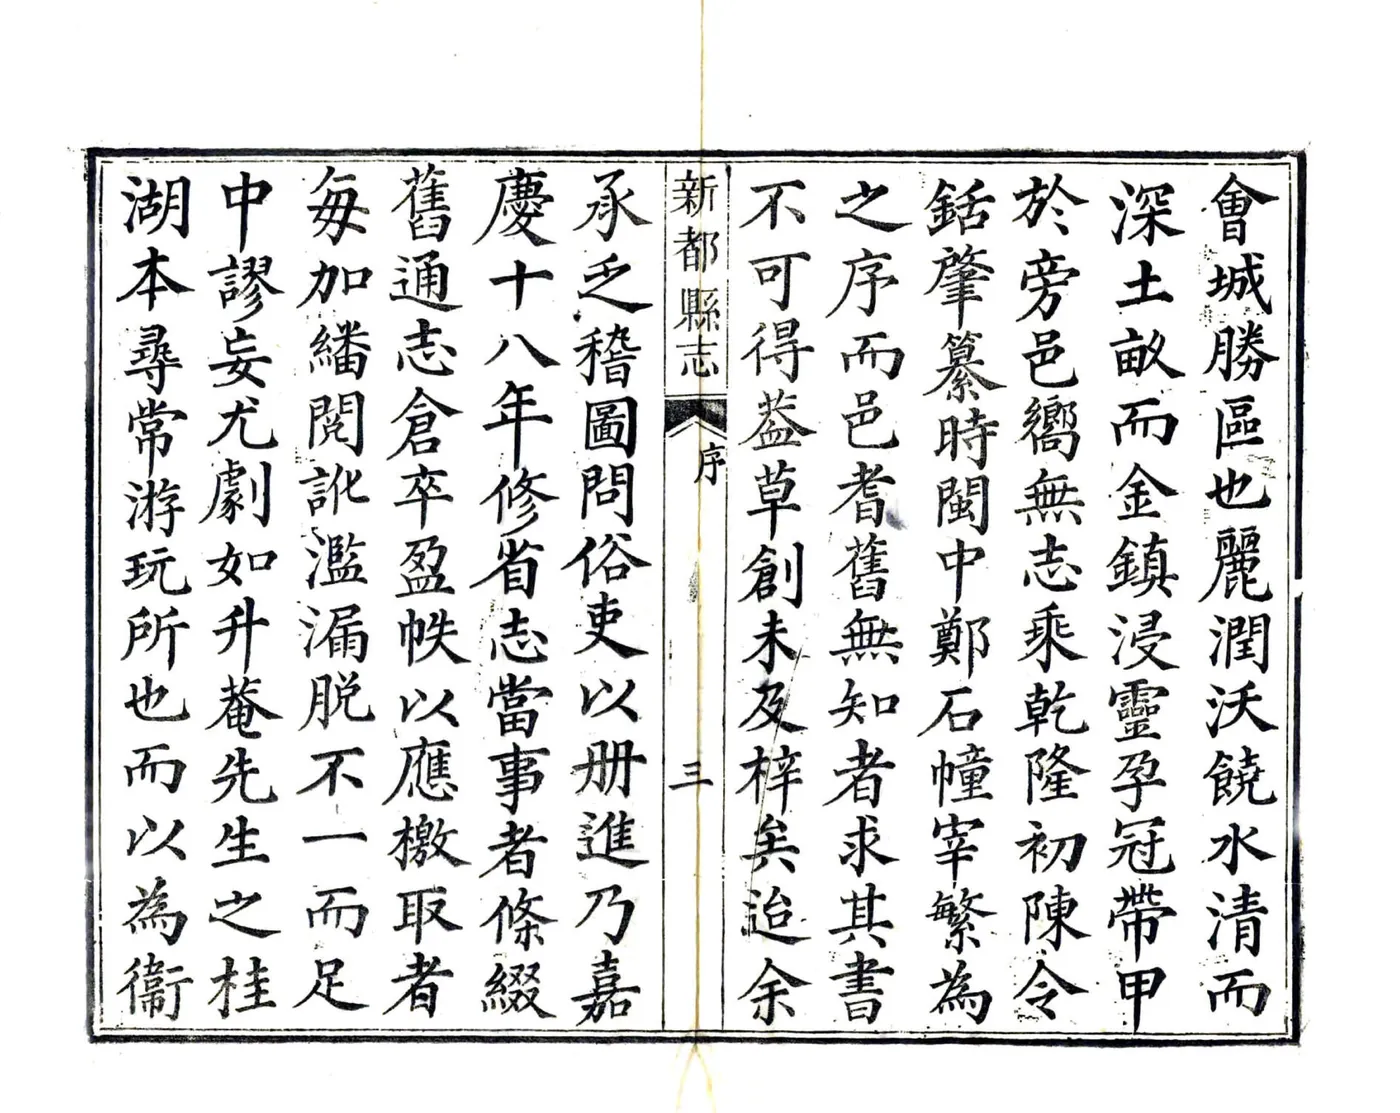 會城勝區也麗潤沃饒水清而
深土畝而金鎮浸靈孕冠帶甲
於旁邑嚮無志乘乾隆初陳令
銛肇纂時閩中鄭石幢宰繁為
之序而邑耆舊無知者求其書
不可得葢草創未及梓矣迨余
新都縣志
序
三
承乏稽圖問俗吏以册進乃嘉
慶十八年修省志當事者條綴
舊通志倉卒盈帙以應檄取者
每加繙閱訛濫漏脱不一而足
中謬妄尤劇如升菴先生之桂
湖本尋常游玩所也而以為衞